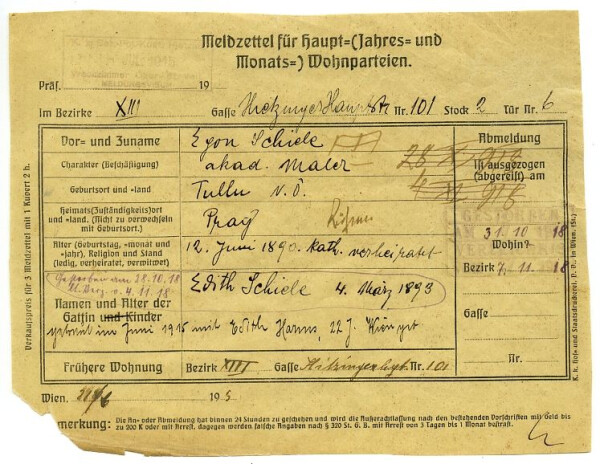 Meldzettel für Haupt=(Jahres= und
Monats=) Wohnparteien.
Präs. 19
Im Bezirke XIII Gasse Hietzinger Hauptstr Nr. 101 Stock 2 Tür Nr. 6
Vor= und Zuname Egon Schiele Abmeldung
Charakter (Beschäftigung) akad. Maler
Ist ausgezogen
(abgereist) am
Geburtsort und =land Tulln N. Ö.
Heimats(Zuständigkeits)ort
und =land. (Nicht zu verwechseln
mit Geburtsort.)
Prag
31.10.18
Wohin?
Alter (Geburtstag, =monat und
=jahr), Religion und Stand
(ledig, verheiratet, verwitwet)
12. Juni 1890. Kath. verheiratet
Bezirk 7. 11. 18
Gestorben am 28.10.18
Edith Schiele 4. März 1893
Namen und Alter der
Gattin und Kinder
Gasse
getraut im Juni 1915 mit Edith Harms, 22 J.
Nr.
Frühere Wohnung Bezirk XIII Gasse Nr. 101
Wien, 19
Bemerkung: Die An= oder Abmeldung hat binnen 24 Stunden zu geschehen und wird die Außerachtlassung nach den bestehenden Vorschriften mit Geld bis
zu 200 K oder mit Arrest, dagegen werden falsche Angaben nach § 320 St. G. B. mit Arrest von 3 Tagen bis 1 Monat bestraft.
Verkaufspreis für 3 Meldzettel mit 1 Kuvert 2 h.
K. k. Hof= und Staatsdruckerei.